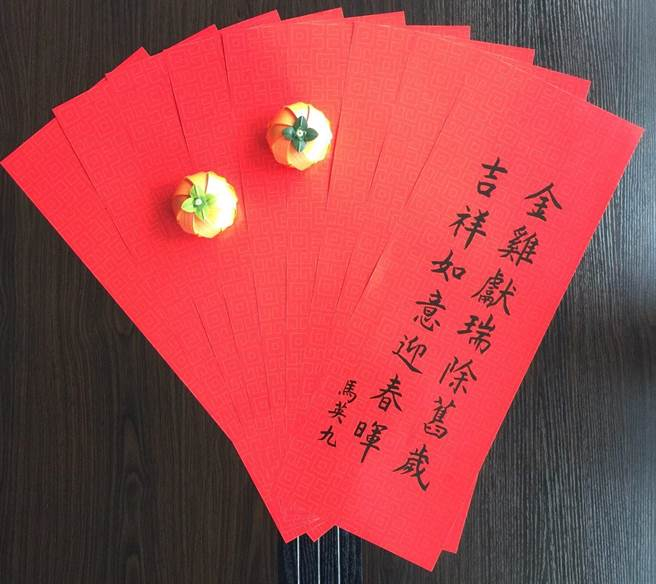 金雞獻瑞除舊歲
吉祥如意迎春暉
馬英九